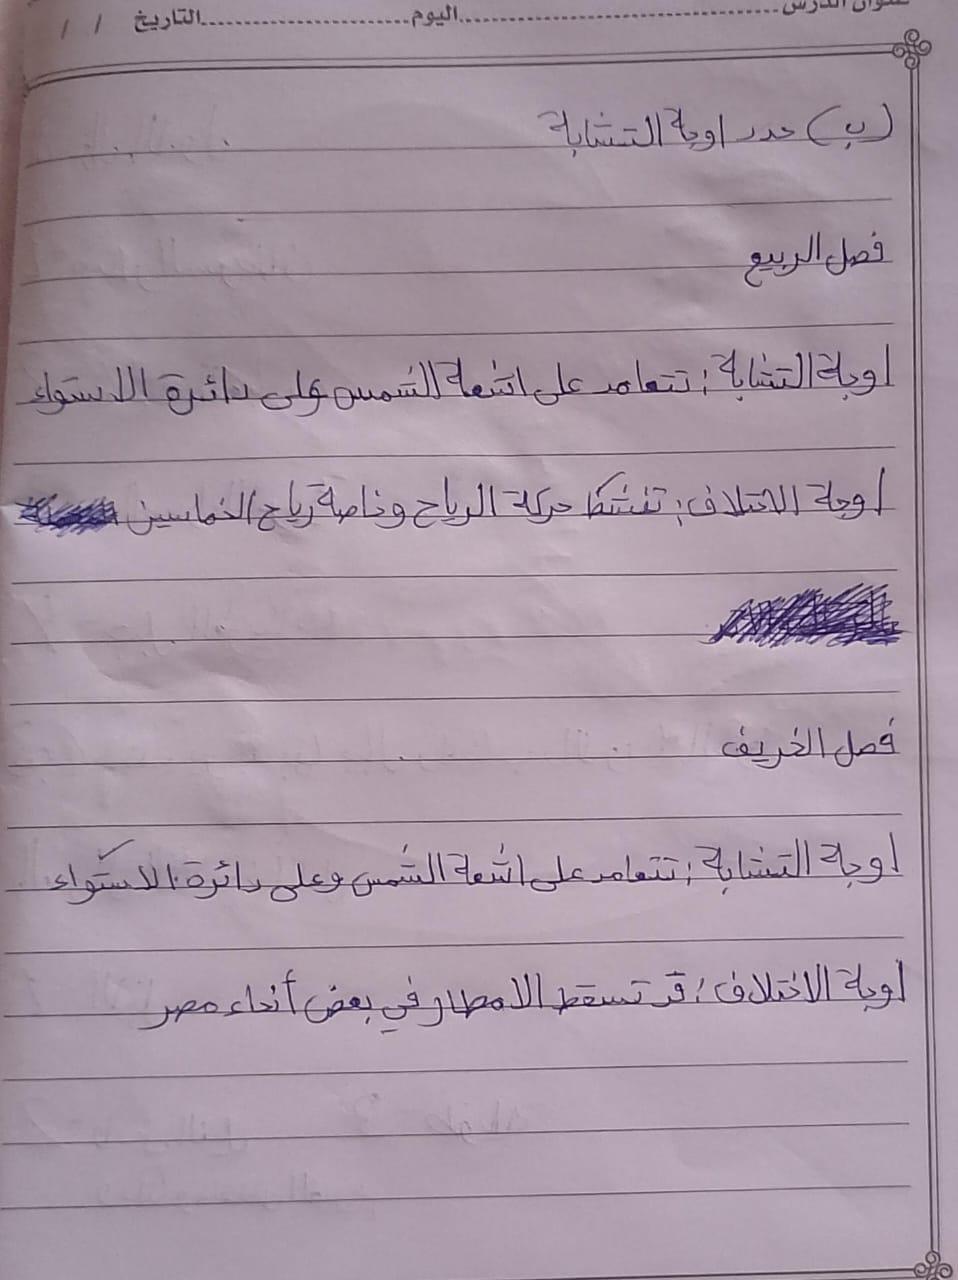 عنوان الدرس........................اليوم........................التاريخ / /
(ب) حدد اوجة التشابة
فصل الربيع
اوجة التشابة : تتعامد على اشعة الشمس وعلى دائرة الاستواء
اوجة الاختلاف : تنشط حركة الرياح وخاصة رياح الخماسين
فصل الخريف
اوجة التشابة : تتعامد على اشعة الشمس وعلى دائرة الاستواء
اوجة الاختلاف : قد تسقط الامطار في بعض أنحاء مصر